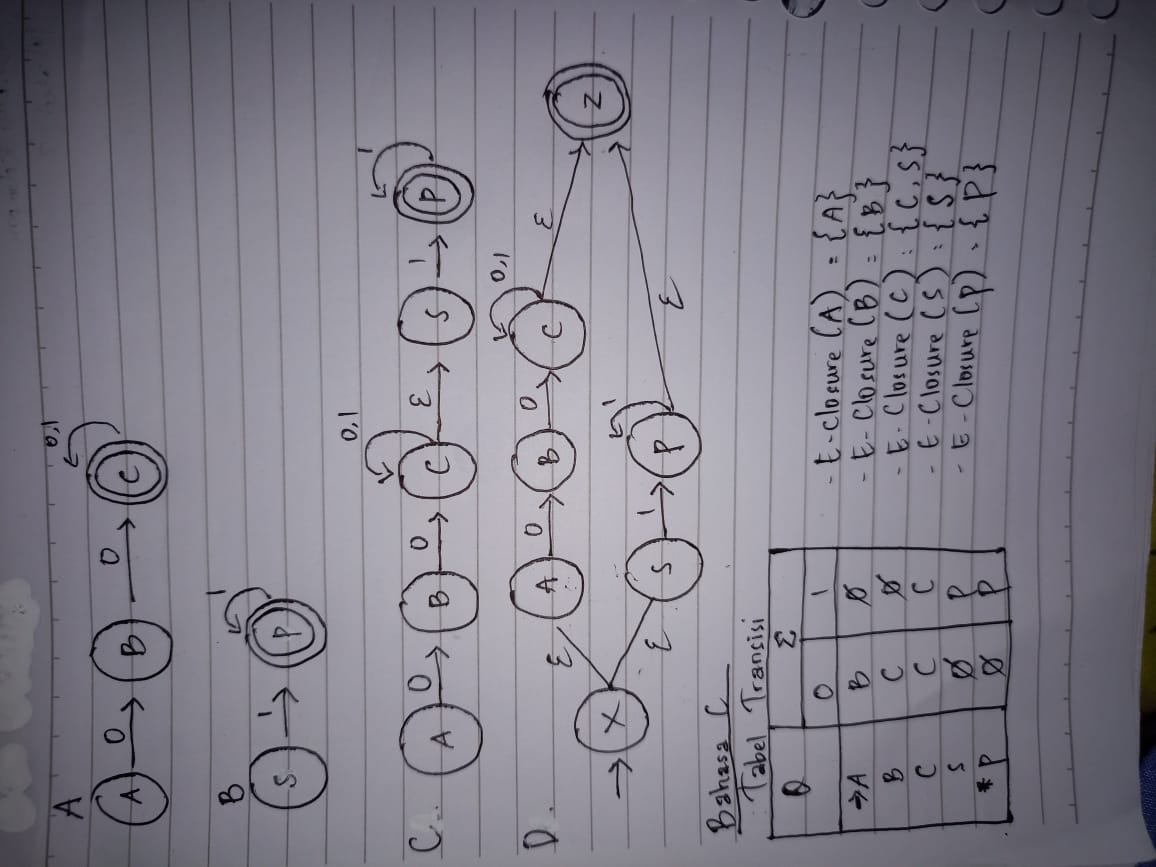 A
A 0 B 0 C 0,1
B
S 1 P 1
C. A 0 B 0 C 0,1 ε S 1 P 1
D. X ε A 0 B 0 C 0,1 ε Z
ε S 1 P 1 ε
Bahasa C
Tabel Transisi
Q Σ
0 1
→A B Ø
B C Ø
C C C
S Ø P
*P Ø P
- E-Closure (A) = {A}
- E-Closure (B) = {B}
- E-Closure (C) : {C,S}
- E-Closure (S) : {S}
- E-Closure (P) : {P}